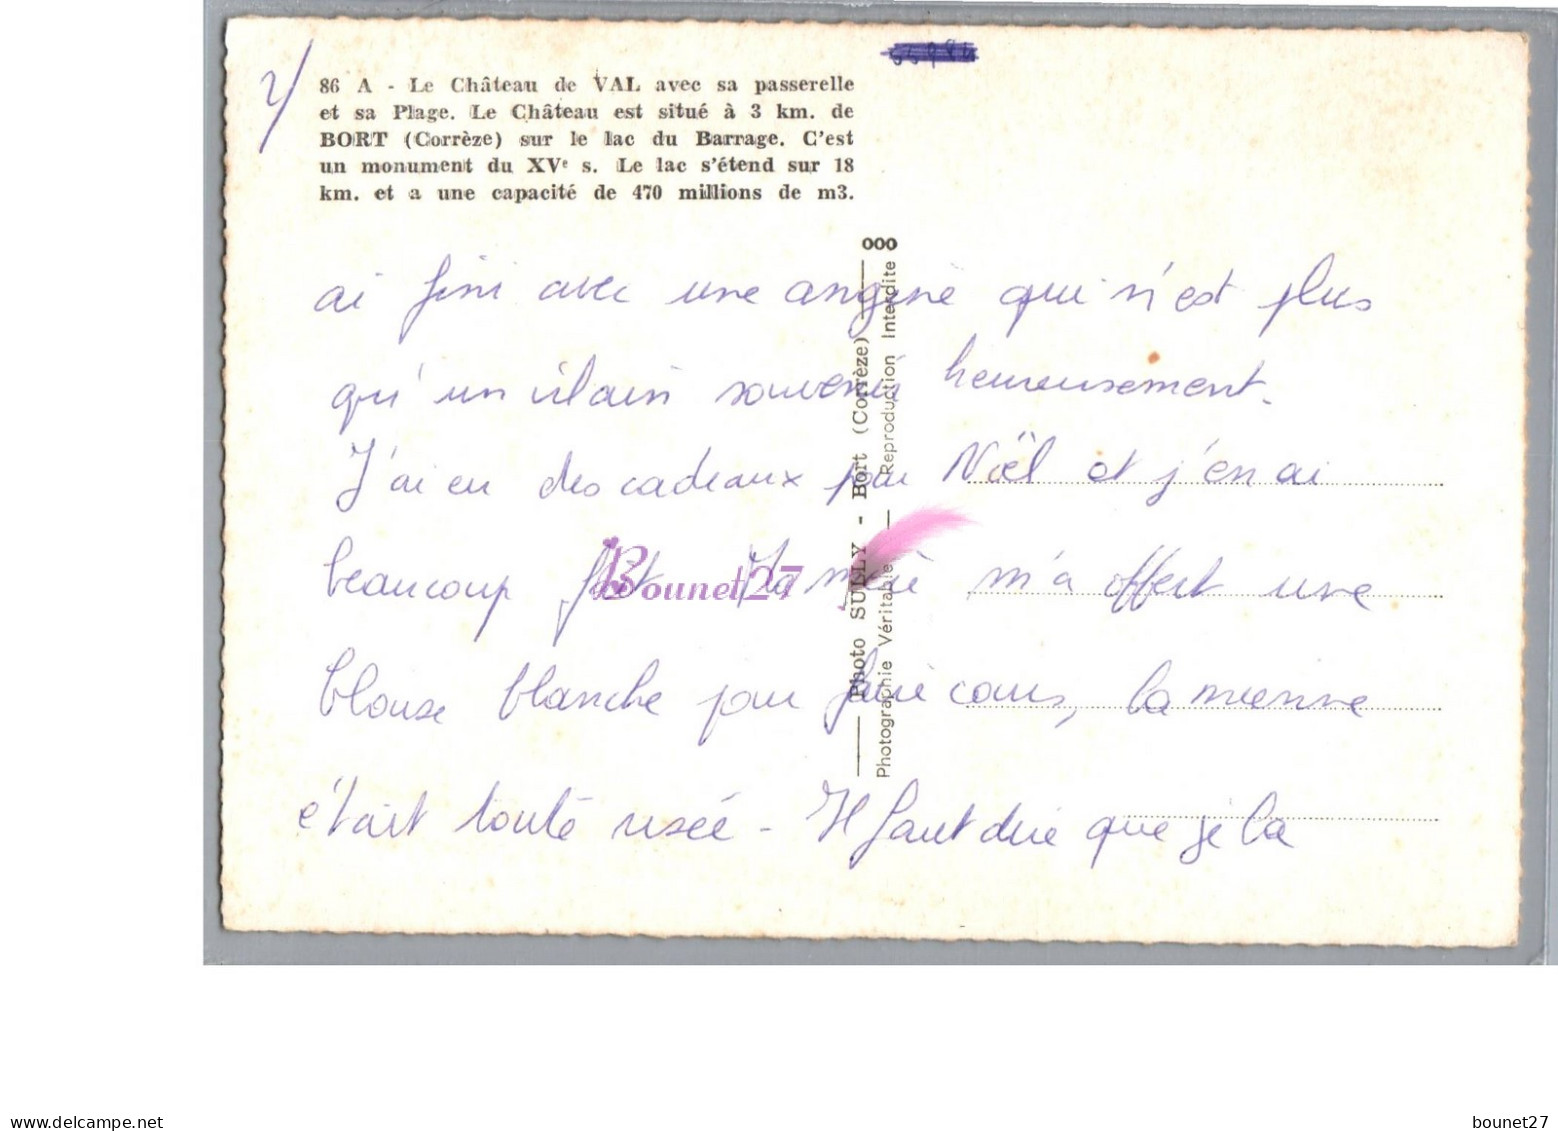 2/
86 A - Le Château de VAL avec sa passerelle
et sa Plage. Le Château est situé à 3 km. de
BORT (Corrèze) sur le lac du Barrage. C'est
un monument du XVe s. Le lac s'étend sur 18
km. et a une capacité de 470 millions de m3.
ooo
ai fini avec une angine qui n'est plus
qu'un vilain souvenir heureusement.
J'ai eu des cadeaux pour Noël et j'en ai
beaucoup fait. Ma mère m'a offert une
blouse blanche pour faire cours, la mienne
était toute usée - Il faut dire que je la
Photo SULLY - Bort (Corrèze)
Photographie Véritable — Reproduction Interdite
Bounet27
www.delcampe.net
bounet27